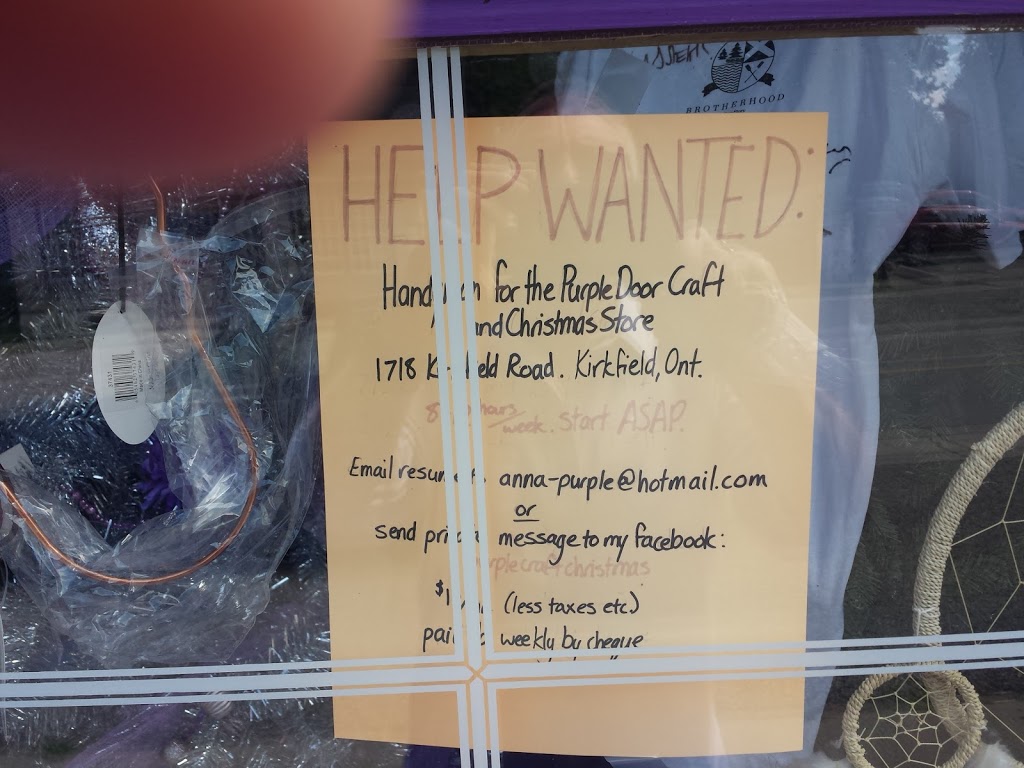 BROTHERHOOD
HELP WANTED:
for the Purple Door Craft
and Christmas Store
1718 Road. Kirkfield, Ont.
hours/week. start ASAP.
Email anna-purple@hotmail.com
or
send message to my facebook:
(less taxes etc.)
weekly by cheque